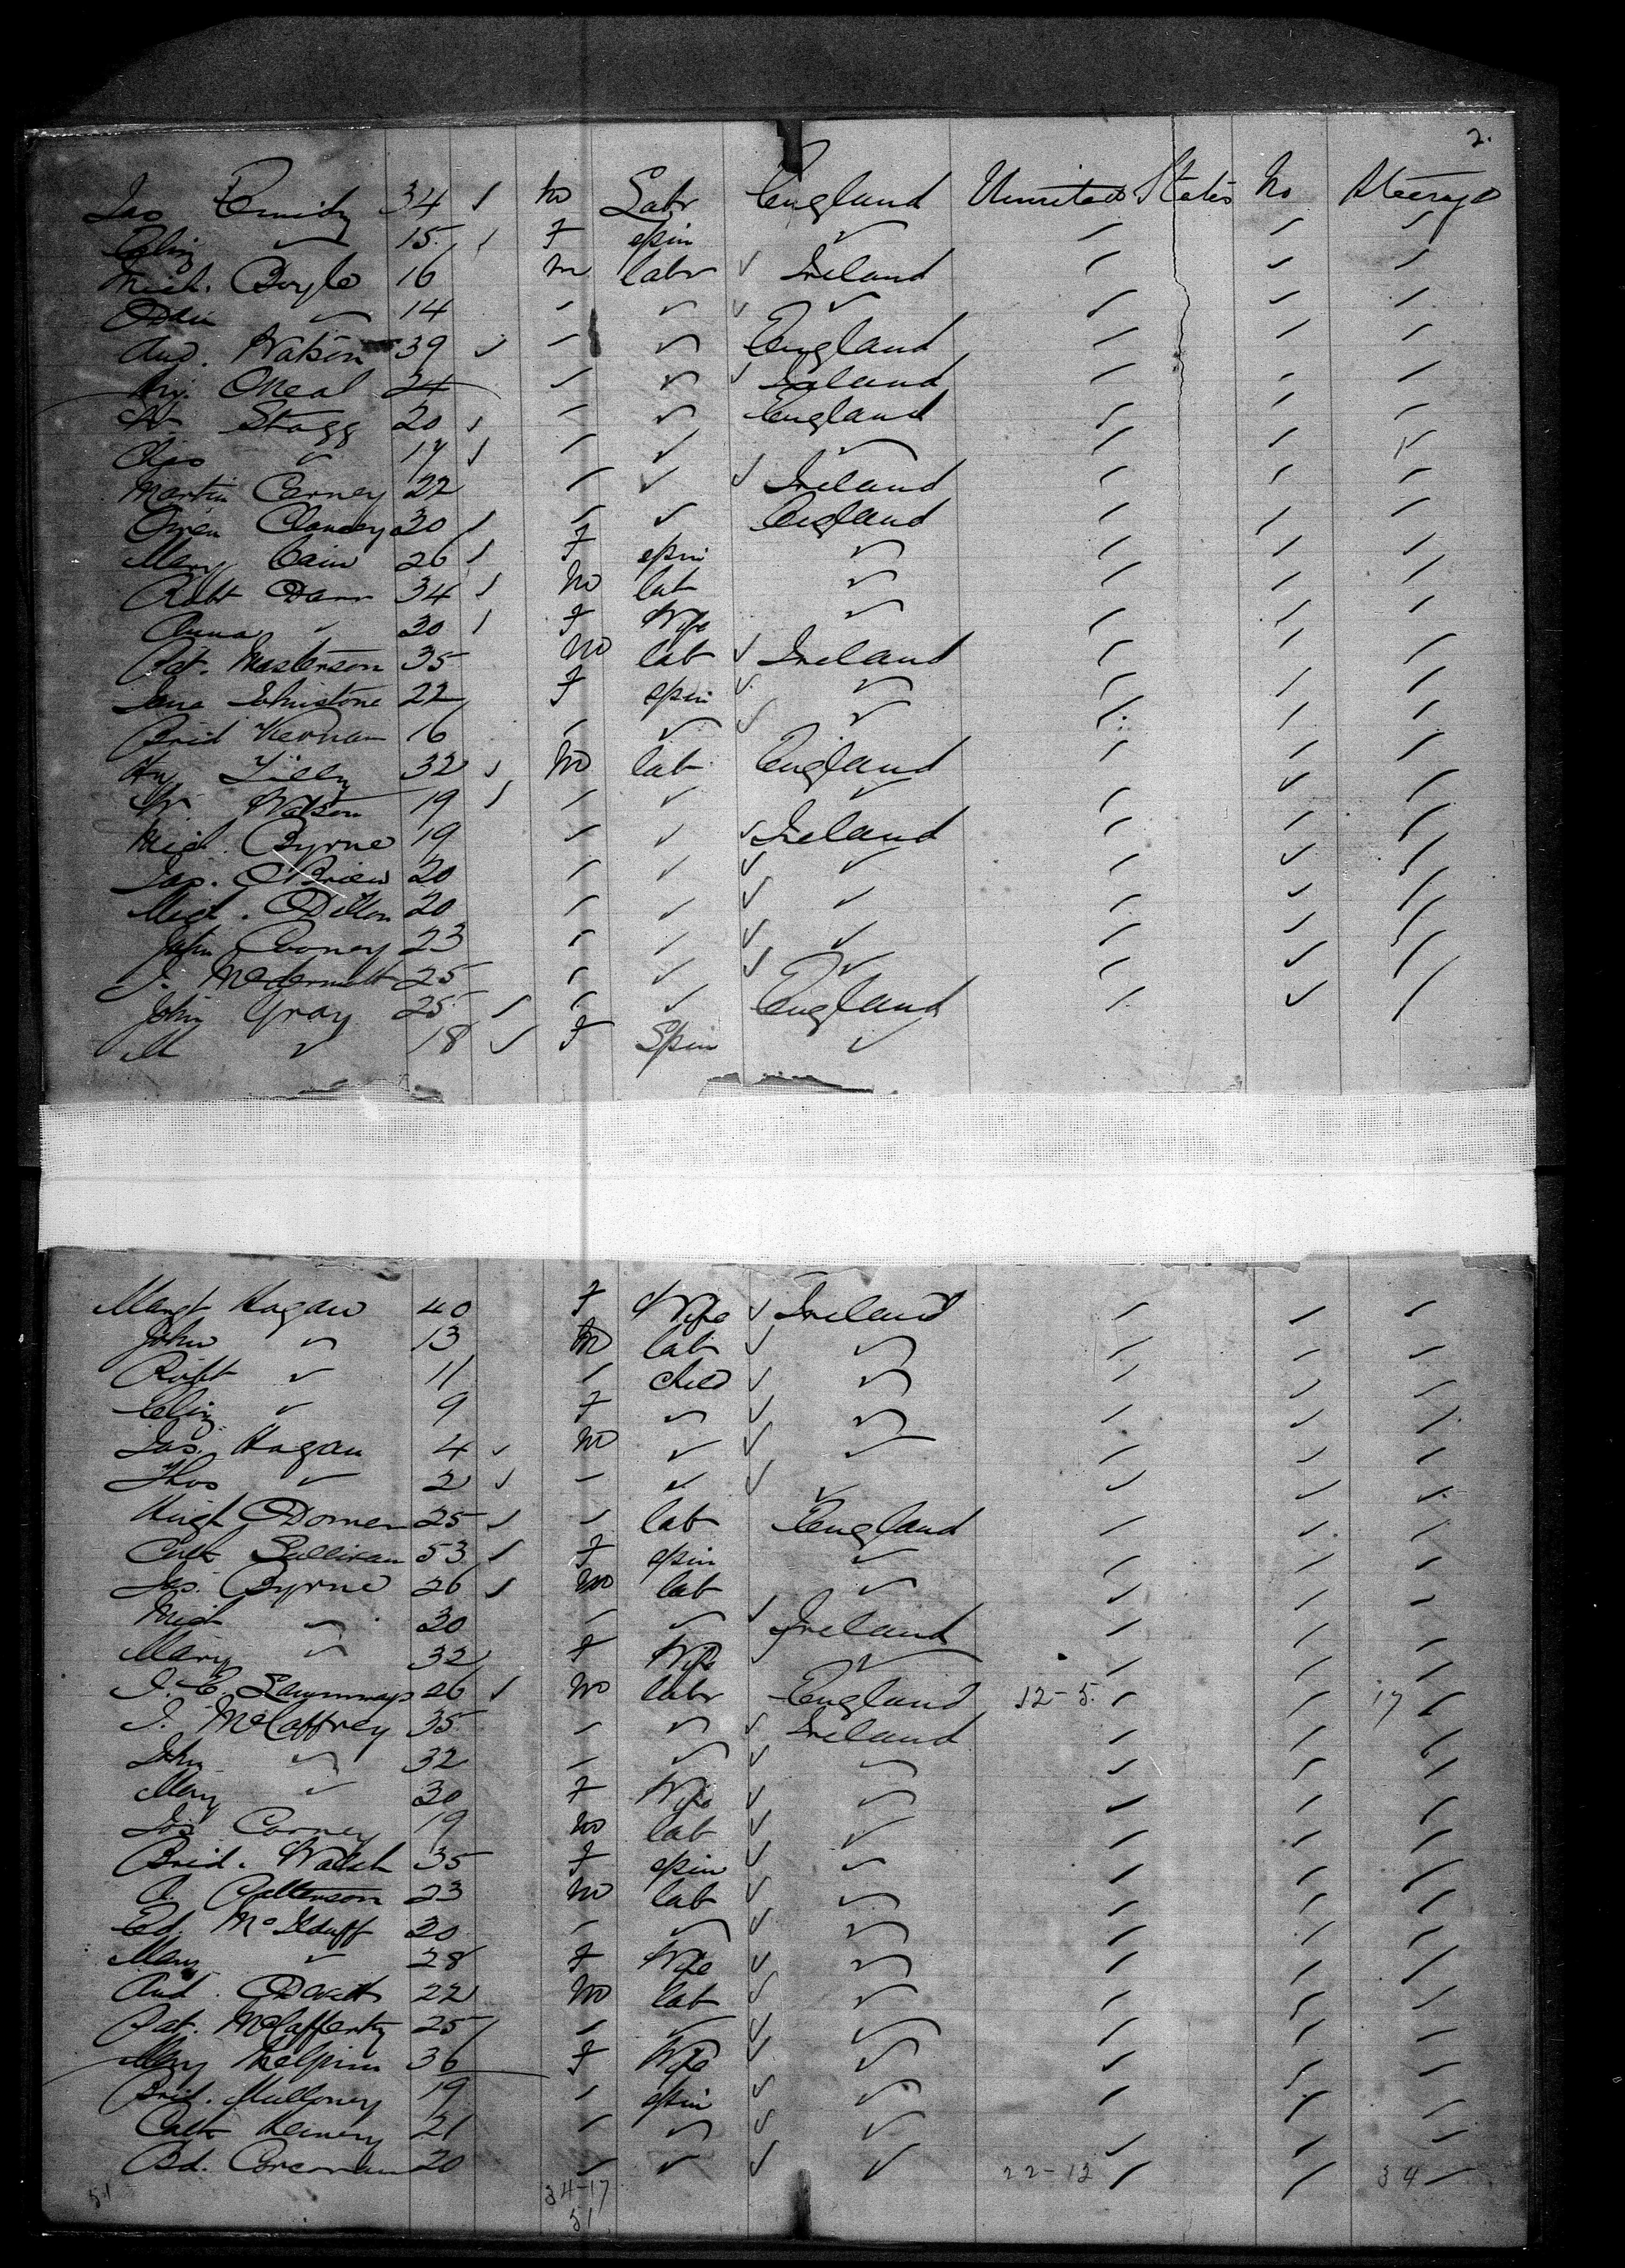 2.
Jas 34 ✓ M Labr England United States No Steerage
Eliz ✓ 15 ✓ F spin ✓
Mich. Boyle 16 M labr ✓ Ireland
✓ 14 ✓ ✓ ✓
And. Watson 39 ✓ ✓ England
Hy. ONeal 24 ✓ ✓ Ireland
W Stagg 20 ✓ ✓ England
Chas ✓ 17 ✓ ✓ ✓
Martin Carney 22 ✓ ✓ Ireland
Owen Clancey 30 ✓ ✓ England
Mary Cain 26 ✓ F spin ✓
Robt 34 ✓ M lab ✓
Anna ✓ 30 ✓ F Wife ✓
Pat. Masterson 35 M lab ✓ Ireland
Jane Johnstone 22 F spin ✓ ✓
Brid Kernan 16 ✓ ✓ ✓
Hy 32 ✓ M lab England
W. Watson 19 ✓ ✓ ✓
Mich. Byrne 19 ✓ ✓ Ireland
Jas. O'Brien 20 ✓ ✓ ✓
Mich. Dillon 20 ✓ ✓ ✓
John Cooney 23 ✓ ✓ ✓
J. McDermott 25 ✓ ✓ ✓
John Gray 25 ✓ ✓ England
M ✓ 18 ✓ F Spin ✓
Margt Hagan 40 F Wife ✓ Ireland
John ✓ 13 M lab ✓ ✓
Robt ✓ 11 child ✓ ✓
Eliz ✓ 9 F ✓ ✓ ✓
Jas. Hagan 4 ✓ M ✓ ✓ ✓
Thos ✓ 2 ✓ ✓ ✓ ✓
Hugh 25 ✓ lab England
Cath Sullivan 53 ✓ F spin ✓
Jas. Byrne 26 ✓ M lab ✓
Mich ✓ 30 ✓ ✓ Ireland
Mary ✓ 32 F Wife ✓ ✓
J. E. 26 ✓ M labr England 12-5. 17
J. McCaffrey 35 ✓ ✓ Ireland
John ✓ 32 ✓ ✓ ✓
Mary ✓ 30 F Wife ✓ ✓
Jas Carney 19 M lab ✓ ✓
Brid. Walsh 35 F spin ✓ ✓
A. Patterson 23 M lab ✓ ✓
Ed. 30 ✓ ✓ ✓
Mary ✓ 28 F Wife ✓ ✓
And. 22 M lab ✓ ✓
Pat. McCafferty 25 ✓ ✓ ✓
Mary 36 F Wife ✓ ✓
Brid. Mulloney 19 spin ✓ ✓
Cath 21 ✓ ✓ ✓
Bd. Corcoran 20 ✓ ✓ ✓ 22-12 34
51 34-17
51